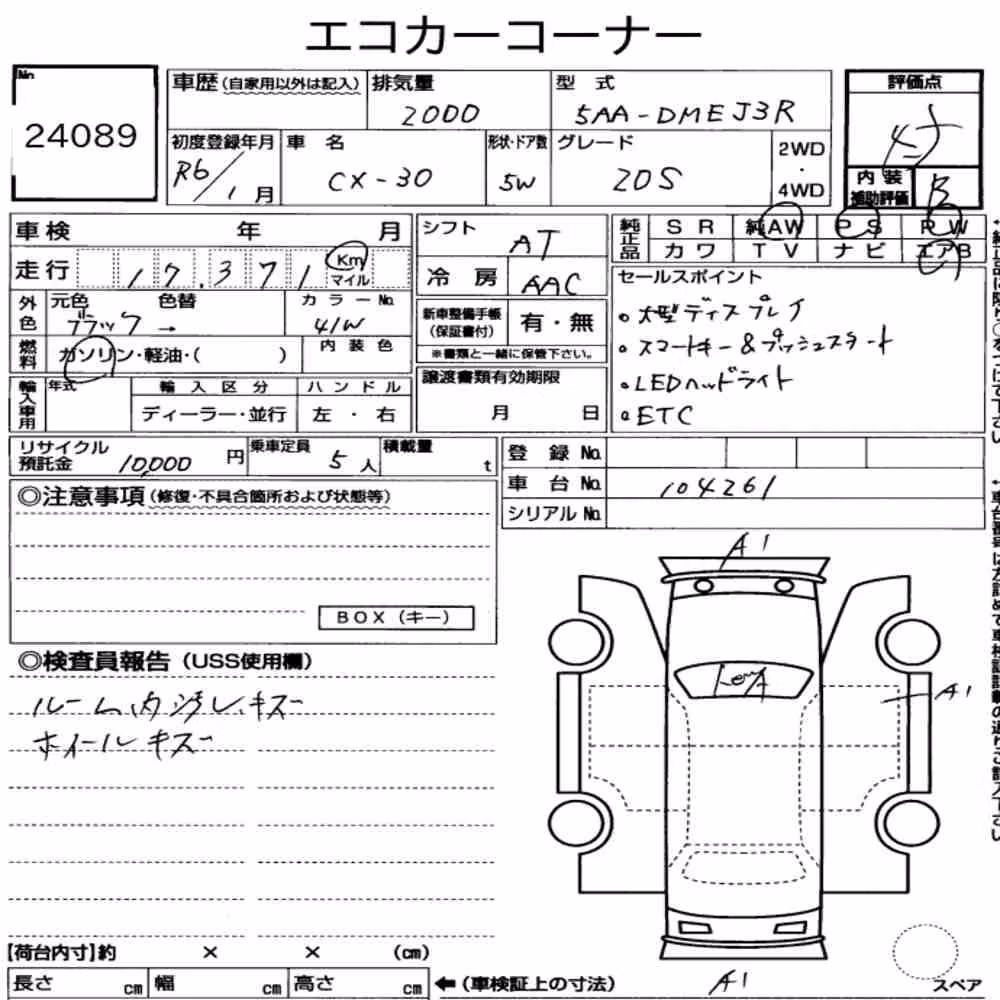 エコカーコーナー
No
24089
車歴(自家用以外は記入) 排気量 型 式 評価点
2000 5AA-DMEJ3R
初度登録年月 車 名 形状・ドア数 グレード 2WD
・
4WD
R6/1月 CX-30 5W 20S
内 装
補助評価 B
車検 年 月
走行 17.371 Km
マイル
シフト AT
冷 房 AAC
純正品 S R 純AW P S P W
カワ T V ナビ エアB
外色 元色 色替 カラーNo
ブラック → 41W
燃料 ガソリン・軽油・( ) 内 装 色
新車整備手帳
(保証書付) 有・無
※書類と一緒に保管下さい。
セールスポイント
・大型ディスプレイ
・スマートキー&プッシュスタート
・LEDヘッドライト
・ETC
輸入車用 年式 輸 入 区 分 ハ ン ド ル
ディーラー・並行 左 ・ 右
譲渡書類有効期限
月 日
リサイクル
預託金 10,000 円 乗車定員 5 人 積載量 t
登 録 No
車 台 No 104261
シリアル No
◎注意事項(修復・不具合箇所および状態等)
BOX(キー)
◎検査員報告(USS使用欄)
ルーム内汚レ、キズ
ホイールキズ
A1
A1
A1
【荷台内寸】約 × × (cm)
長さ cm 幅 cm 高さ cm ←(車検証上の寸法)
スペア